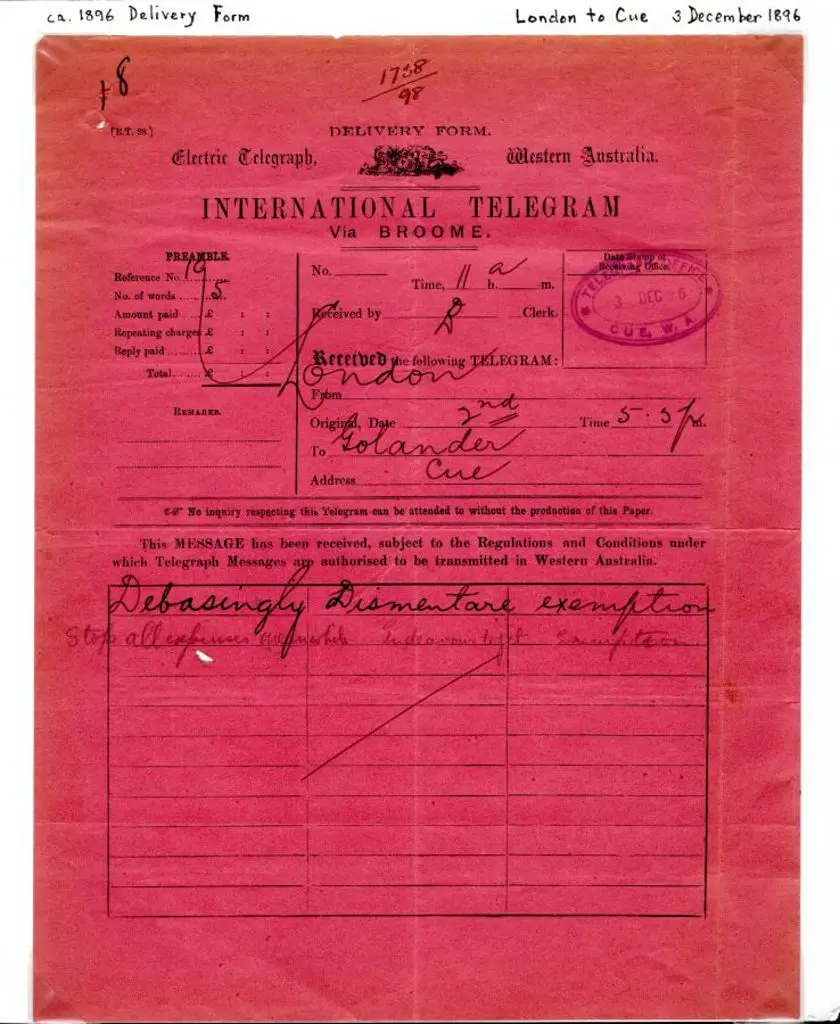 ca. 1896 Delivery Form London to Cue 3 December 1896
8
1738
98
(E.T. 28.)
DELIVERY FORM.
Electric Telegraph, Western Australia.
INTERNATIONAL TELEGRAM
Via BROOME.
PREAMBLE.
Reference No. 19
No. of words 5
Amount paid £ : :
Repeating charges £ : :
Reply paid £ : :
Total £ : :
REMARKS.
No.
Time, 11 h. a m.
Received by Clerk.
Date Stamp of
Receiving Office.
3 DEC 6
CUE, W. A.
Received the following TELEGRAM:
From London
Original, Date 2nd Time 5.5 p m.
To Golander
Address Cue
No inquiry respecting this Telegram can be attended to without the production of this Paper.
This MESSAGE has been received, subject to the Regulations and Conditions under
which Telegraph Messages are authorised to be transmitted in Western Australia.
Debasingly Dismentare exemption
Stop all expenses meanwhile endeavour to get Exemption